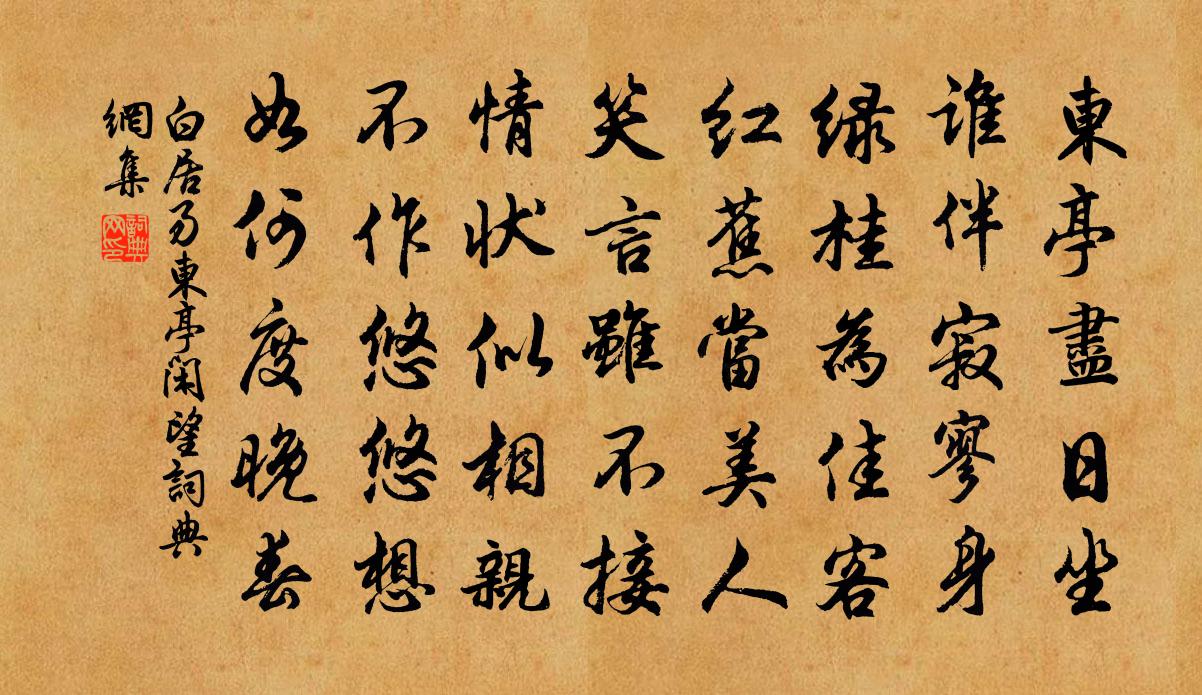 東亭盡日坐
誰伴寂寥身
綠桂為佳客
紅蕉當美人
笑言雖不接
情狀似相親
不作悠悠想
如何度晚春
白居易東亭閑望詞典
網集
詞典
网印